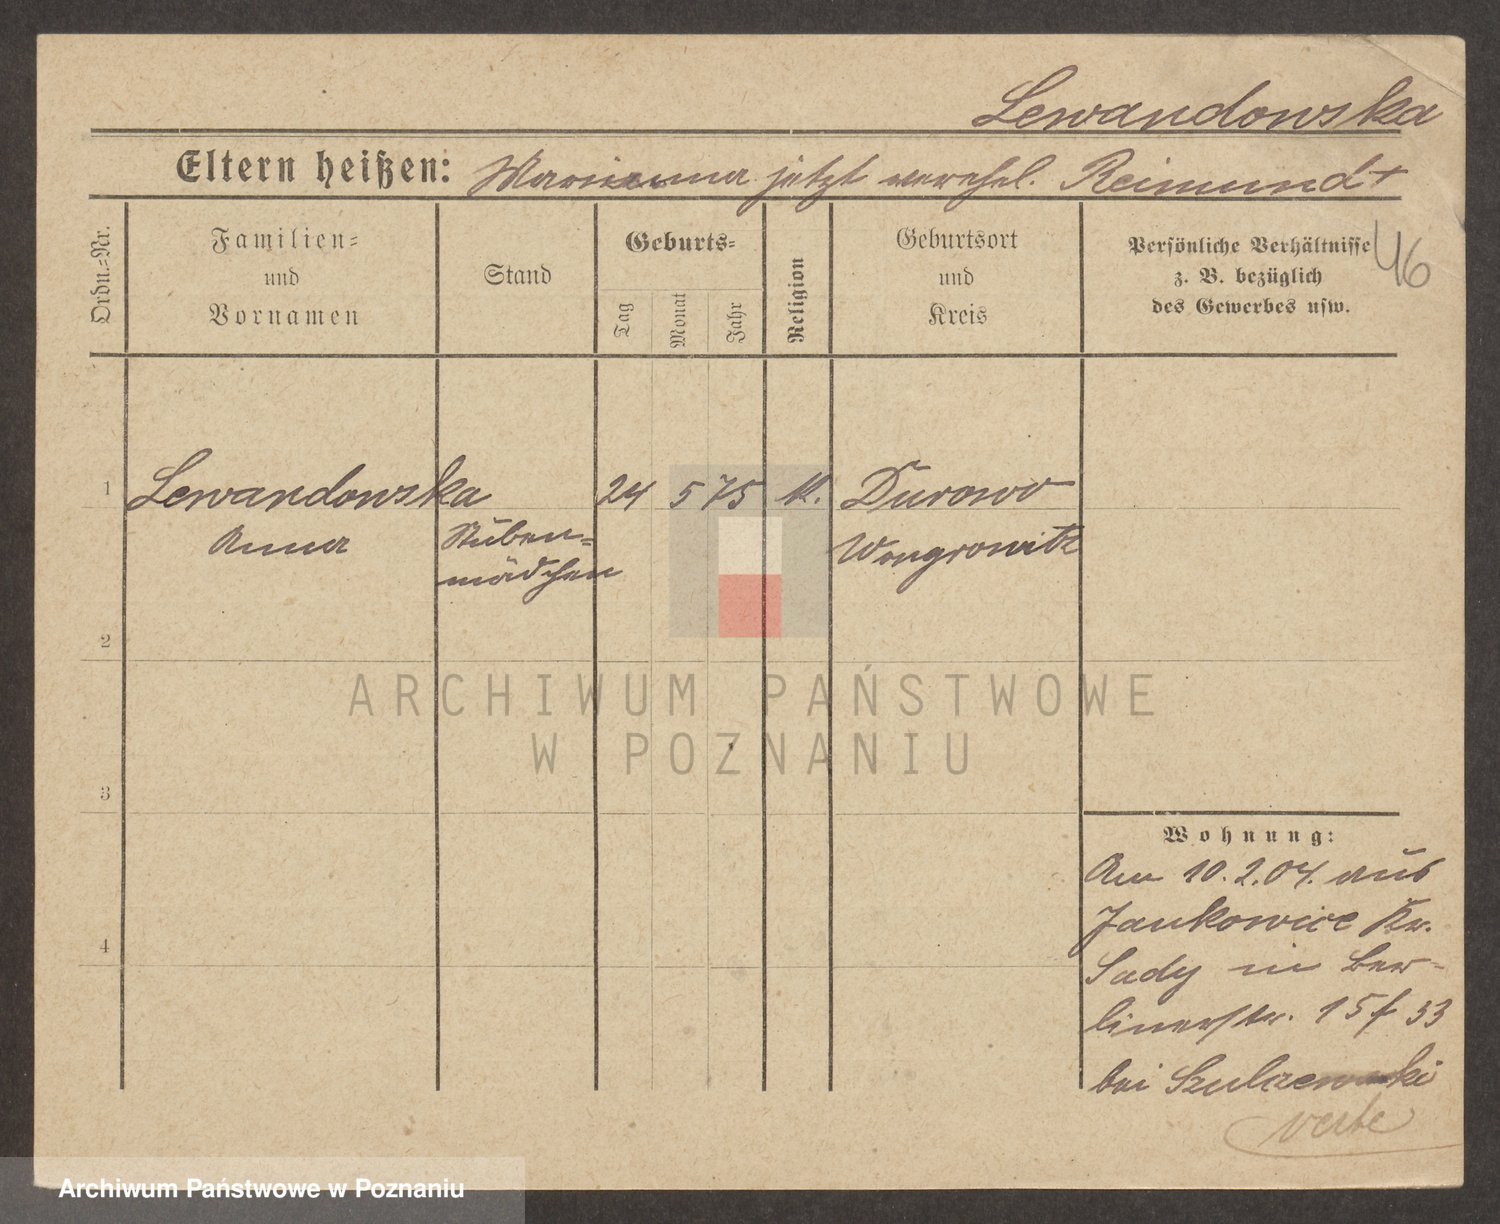 Lewandowska
Eltern heißen: Marianna jetzt verehel. Reimund+
Ordn.-Nr.
Familien-
und
Vornamen
Stand
Geburts-
Tag
Monat
Jahr
Religion
Geburtsort
und
Kreis
Persönliche Verhältnisse
z. B. bezüglich
des Gewerbes usw.
46
1 Lewandowska 24 5 75 k. Durowo
Anna Stuben- Wongrowitz
mädchen
2
3
4
ARCHIWUM PAŃSTWOWE
W POZNANIU
Wohnung:
Am 10.2.04. aus
Jankowice Kr.
Sady in Ber-
linerstr. 15 f 33
bei Szulczewski
Archiwum Państwowe w Poznaniu